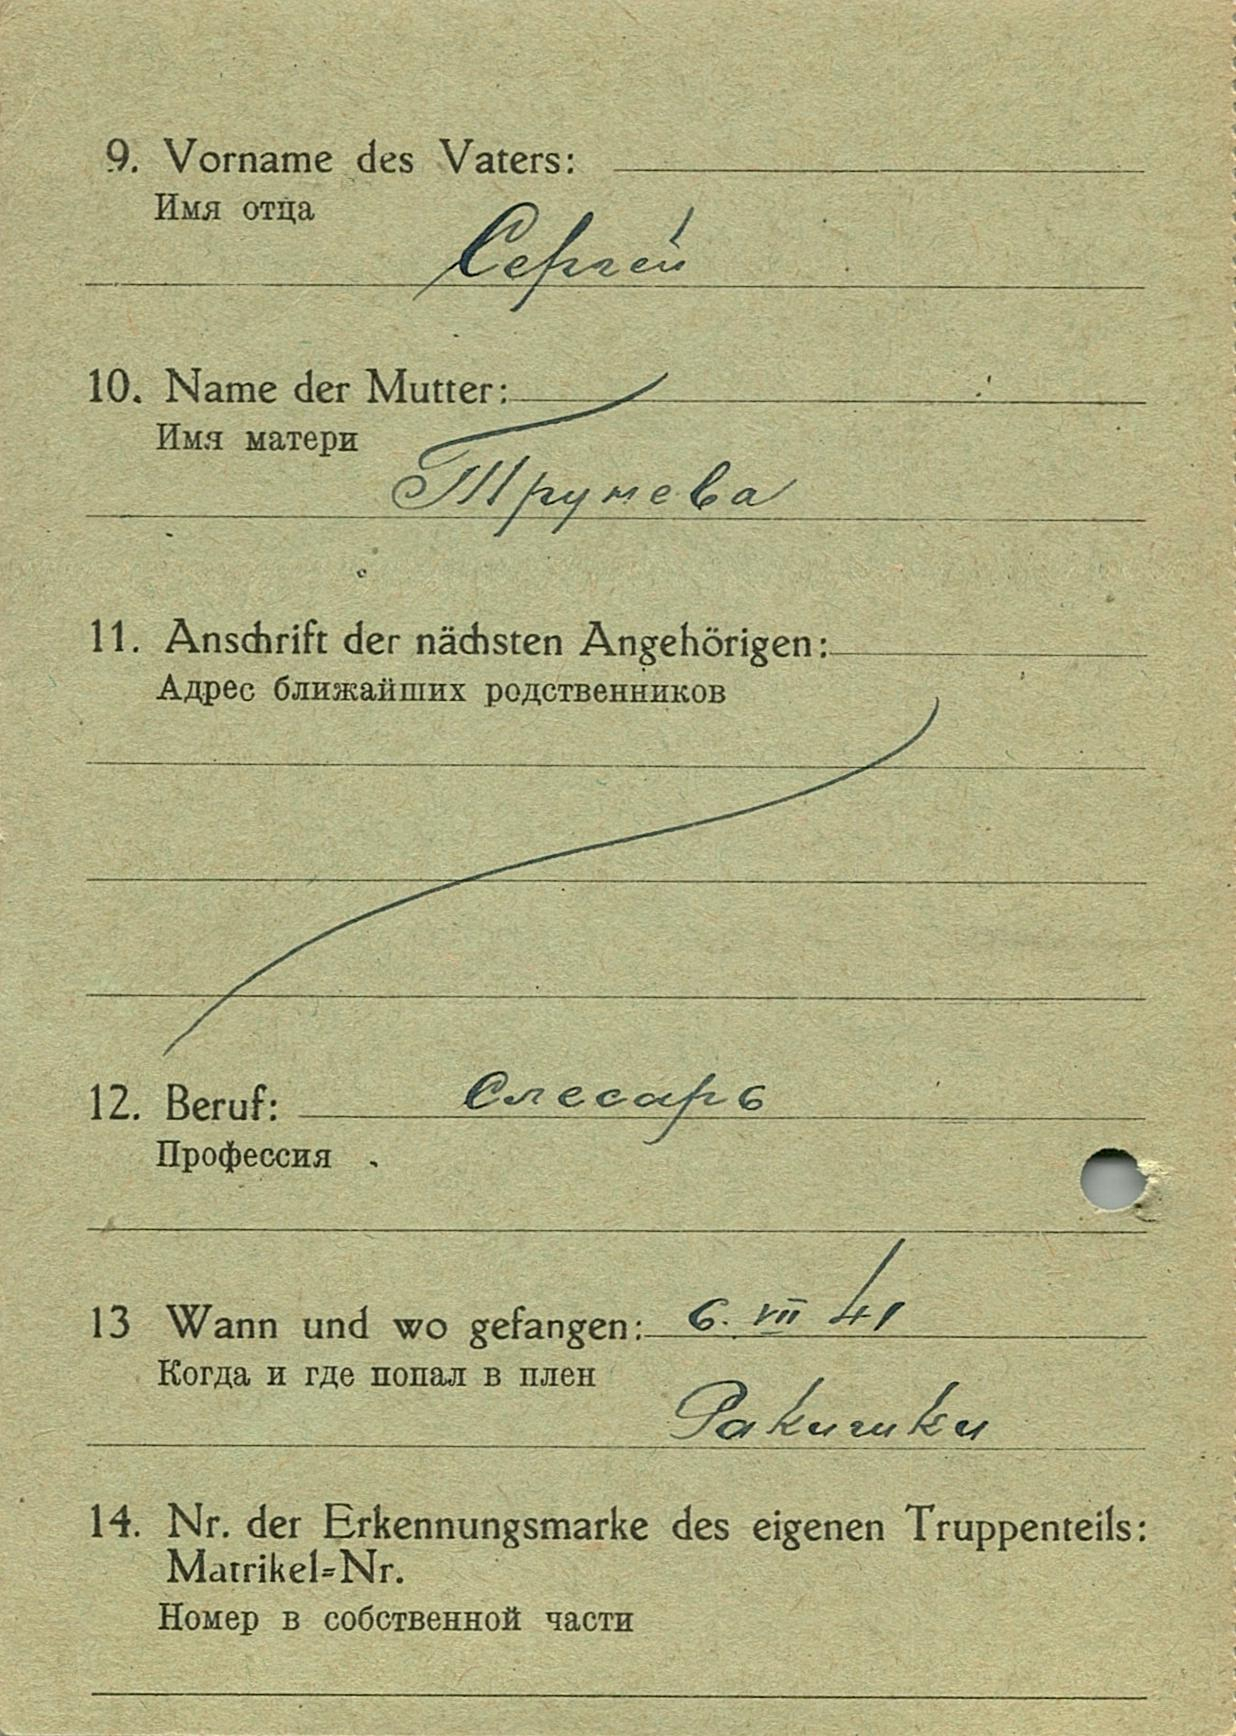 9. Vorname des Vaters:
Имя отца
Сергей
10. Name der Mutter:
Имя матери
Трунева
11. Anschrift der nächsten Angehörigen:
Адрес ближайших родственников
12. Beruf: Слесарь
Профессия
13 Wann und wo gefangen: 6. VII 41
Когда и где попал в плен
14. Nr. der Erkennungsmarke des eigenen Truppenteils:
Matrikel=Nr.
Номер в собственной части